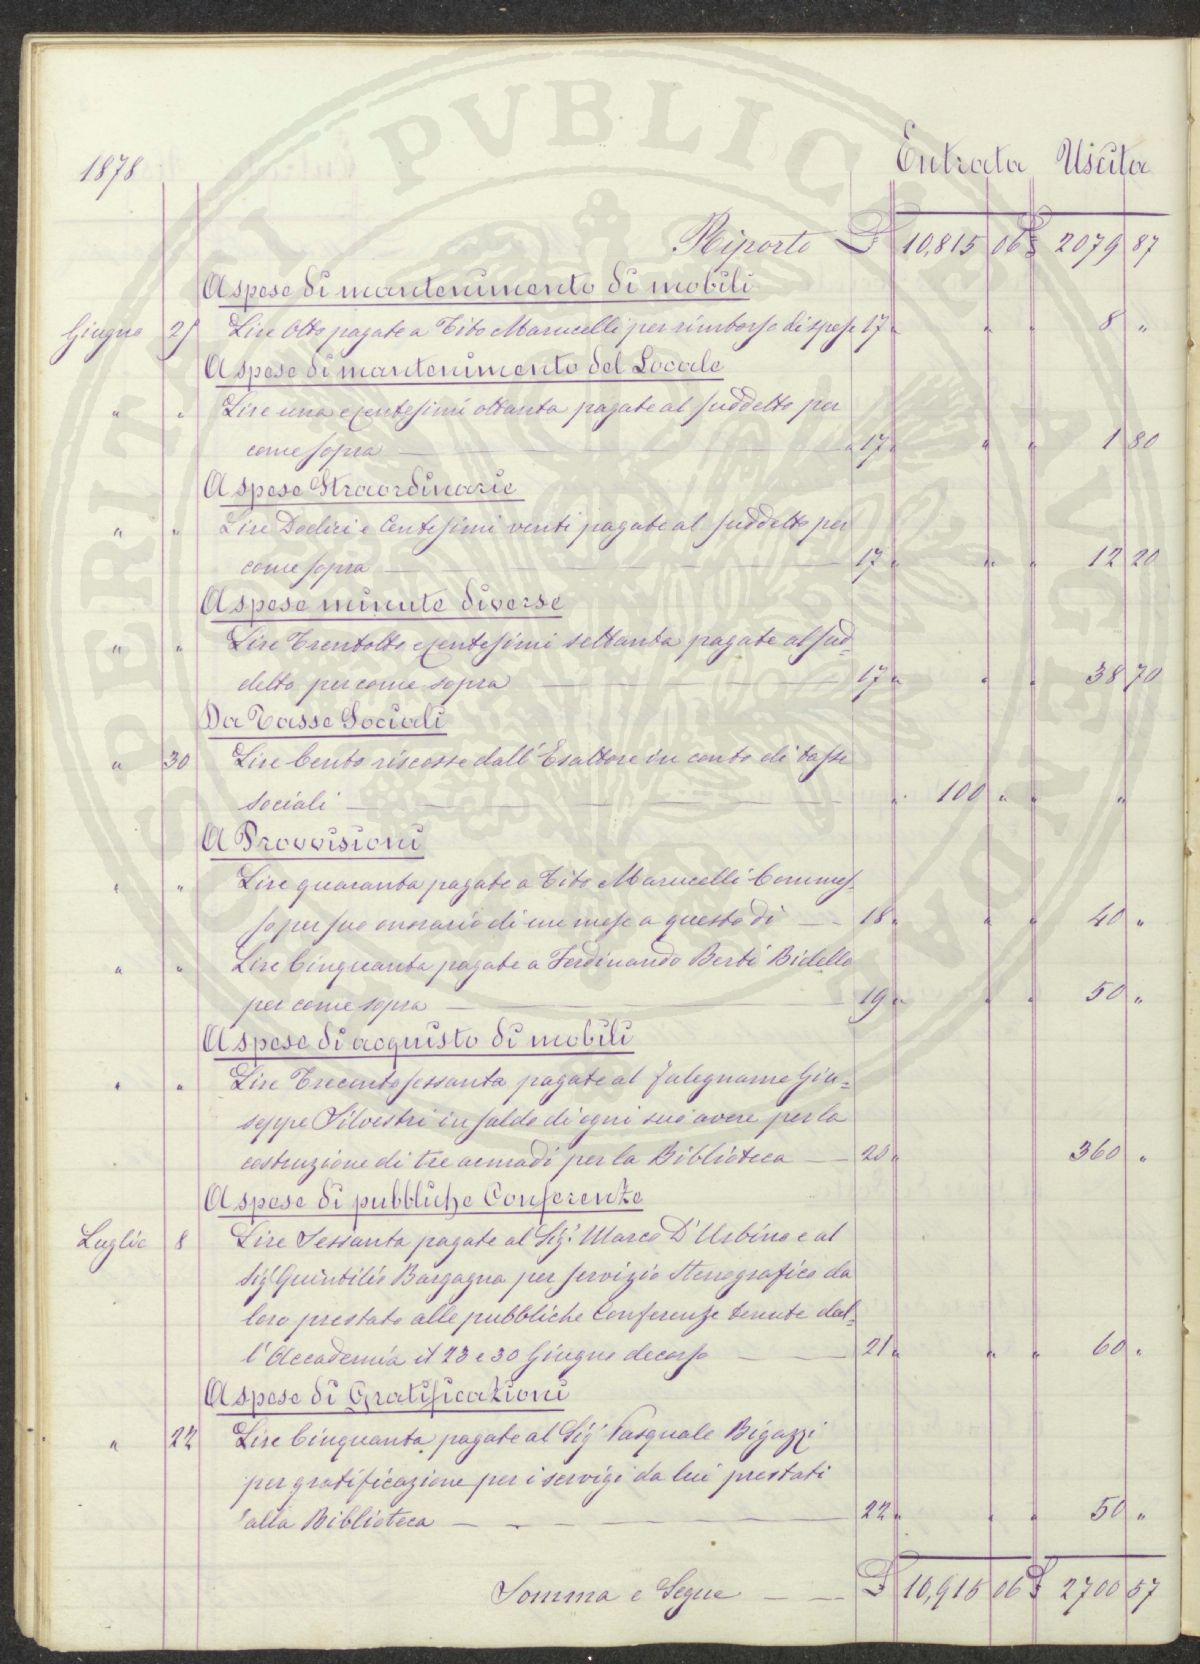 1878
Entrata Uscita
Riporto £ 10,815 06 £ 2079 87
A spese di mantenimento di mobili
Giugno 25 Lire Otto pagate a Tito Marucelli per rimborso di spese 17 " " " 8 "
A spese di mantenimento del Locale
" " Lire una e centesimi ottanta pagate al suddetto per
come sopra 17 " " " 1 80
A spese Straordinarie
" " Lire Dodici e Centesimi venti pagate al suddetto per
come sopra 17 " " " 12 20
A spese minute diverse
" " Lire Trentotto e centesimi settanta pagate al sud=
detto per come sopra 17 " " " 38 70
Da Tasse Sociali
" 30 Lire Cento riscosse dall'Esattore in conto di tasse
sociali " 100 " " "
A Provvisioni
" " Lire quaranta pagate a Tito Marucelli Commes-
so per suo onorario di un mese a questo dì 18 " " " 40 "
" " Lire Cinquanta pagate a Ferdinando Berti Bidello
per come sopra 19 " " " 50 "
A spese di acquisto di mobili
" " Lire Trecentosessanta pagate al falegname Giu=
seppe Silvestri in saldo di ogni suo avere per la
costruzione di tre armadi per la Biblioteca 20 " 360 "
A spese di pubbliche Conferenze
Luglio 8 Lire Sessanta pagate al Sig.r Marco D'Urbino e al
Sig.r Quintilio Bargagna per servizio stenografico da
loro prestato alle pubbliche Conferenze tenute dal=
l'Accademia il 23 e 30 Giugno decorso 21 " " " 60 "
A spese di Gratificazioni
" 22 Lire Cinquanta pagate al Sig.r Pasquale Bigazzi
per gratificazione per i servigi da lui prestati
alla Biblioteca 22 " " " 50 "
Somma e Segue £ 10,915 06 £ 2700 57